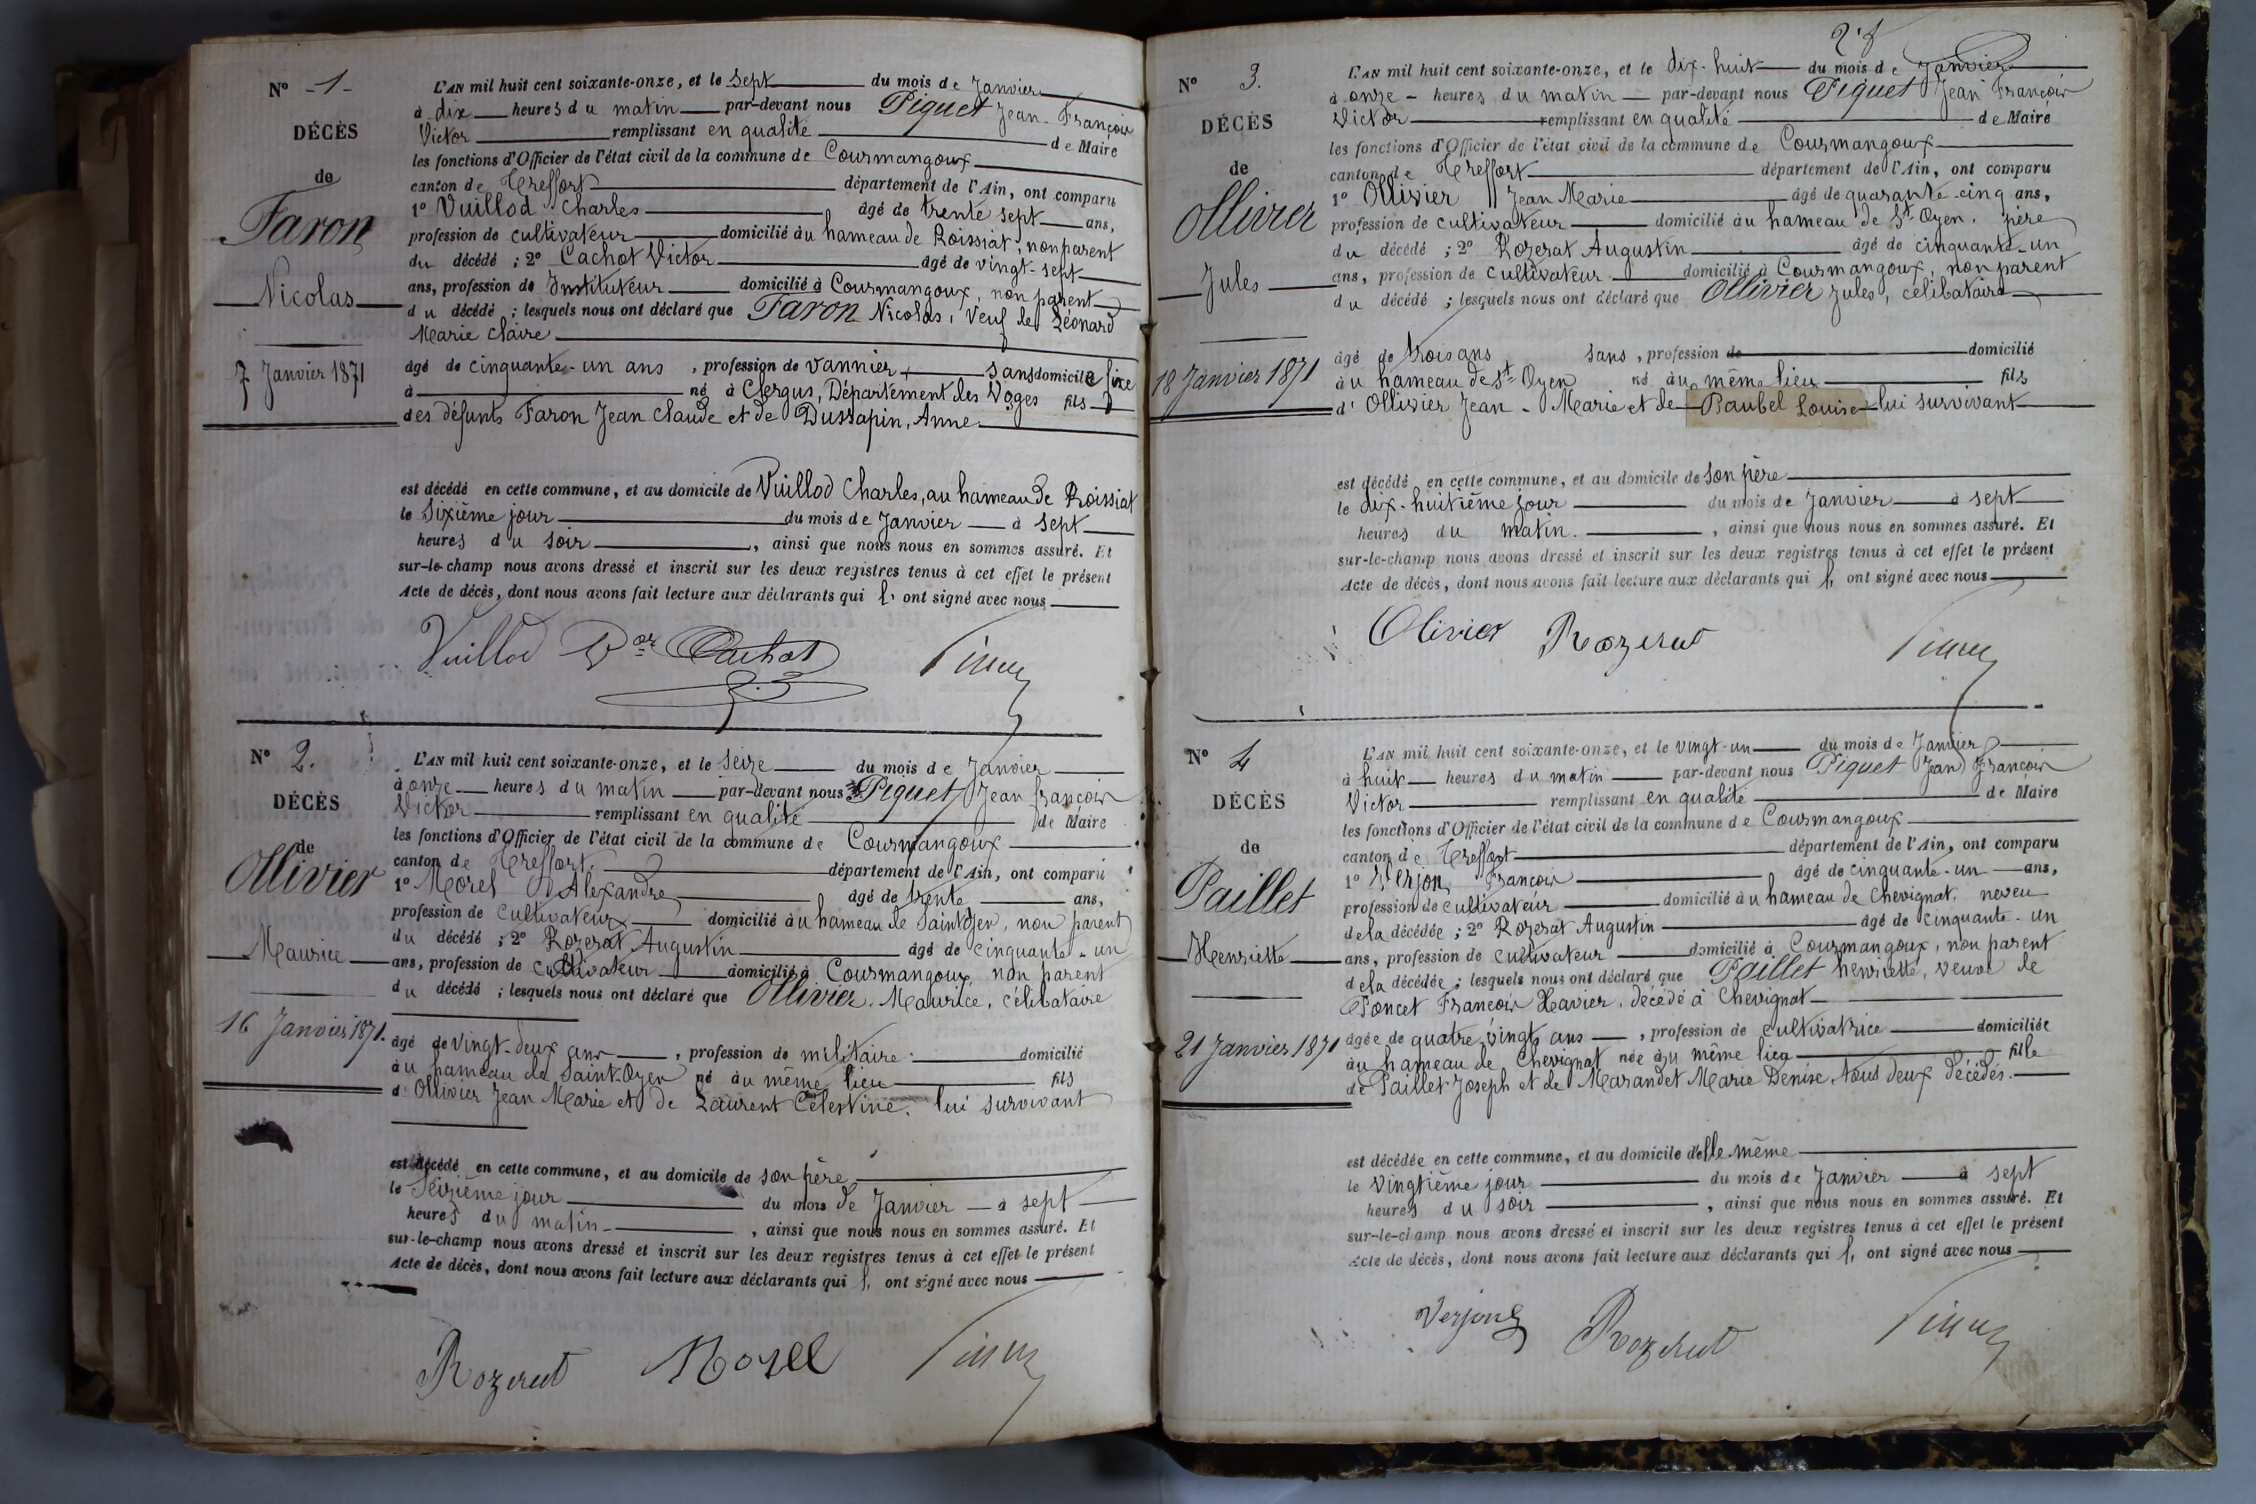 N° 1
DÉCÈS
de
Faron
Nicolas
7 Janvier 1871
L'AN mil huit cent soixante-onze, et le sept du mois de Janvier
à dix heures du matin par-devant nous Piquet Jean-François
Victor remplissant en qualité de Maire
les fonctions d'Officier de l'état civil de la commune de Courmangoux
canton de Treffort département de l'Ain, ont comparu
1° Vuillod Charles âgé de trente sept ans,
profession de cultivateur domicilié au hameau de Roissiat, non parent
du décédé ; 2° Cachot Victor âgé de vingt-sept
ans, profession de Instituteur domicilié à Courmangoux, non parent
du décédé ; lesquels nous ont déclaré que Faron Nicolas, veuf de Léonard
Marie Claire
âgé de cinquante-un ans, profession de vannier, sans domicile fixe
à né à Clergus, Département des Voges fils
des défunts Faron Jean Claude et de Dussapin, Anne
est décédé en cette commune, et au domicile de Vuillod Charles, au hameau de Roissiat
le sixième jour du mois de Janvier à sept
heures du soir, ainsi que nous nous en sommes assuré. Et
sur-le-champ nous avons dressé et inscrit sur les deux registres tenus à cet effet le présent
Acte de décès, dont nous avons fait lecture aux déclarants qui l'ont signé avec nous
Vuillod Cachot
N° 2.
DÉCÈS
de
Ollivier
Maurice
16 Janvier 1871.
L'AN mil huit cent soixante-onze, et le seize du mois de Janvier
à onze heures du matin par-devant nous Piquet Jean françois
Victor remplissant en qualité de Maire
les fonctions d'Officier de l'état civil de la commune de Courmangoux
canton de Treffort département de l'Ain, ont comparu
1° Morel Alexandre âgé de trente ans,
profession de cultivateur domicilié au hameau de Saint Oyen, non parent
du décédé ; 2° Rozerat Augustin âgé de cinquante-un
ans, profession de cultivateur domicilié à Courmangoux, non parent
du décédé ; lesquels nous ont déclaré que Ollivier Maurice, célibataire
âgé de vingt-deux ans, profession de militaire domicilié
au hameau de Saint-Oyen né au même lieu fils
d'Ollivier Jean Marie et de Laurent Célestine, lui survivant
est décédé en cette commune, et au domicile de son père
le Seizième jour du mois de Janvier à sept
heures du matin, ainsi que nous nous en sommes assuré. Et
sur-le-champ nous avons dressé et inscrit sur les deux registres tenus à cet effet le présent
Acte de décès, dont nous avons fait lecture aux déclarants qui l'ont signé avec nous
Rozerat Morel
N° 3.
DÉCÈS
de
Ollivier
Jules
18 Janvier 1871
L'AN mil huit cent soixante-onze, et le dix-huit du mois de Janvier
à onze heures du matin par-devant nous Piquet Jean François
Victor remplissant en qualité de Maire
les fonctions d'Officier de l'état civil de la commune de Courmangoux
canton de Treffort département de l'Ain, ont comparu
1° Ollivier Jean Marie âgé de quarante-cinq ans,
profession de cultivateur domicilié au hameau de St Oyen, père
du décédé ; 2° Rozerat Augustin âgé de cinquante-un
ans, profession de cultivateur domicilié à Courmangoux, non parent
du décédé ; lesquels nous ont déclaré que Ollivier Jules, célibataire
âgé de trois ans sans, profession de domicilié
au hameau de St Oyen né au même lieu fils
d'Ollivier Jean-Marie et de Baubel Louise lui survivant
est décédé en cette commune, et au domicile de son père
le dix-huitième jour du mois de Janvier à sept
heures du matin, ainsi que nous nous en sommes assuré. Et
sur-le-champ nous avons dressé et inscrit sur les deux registres tenus à cet effet le présent
Acte de décès, dont nous avons fait lecture aux déclarants qui l'ont signé avec nous
Olivier Rozerat
N° 4
DÉCÈS
de
Paillet
Henriette
21 Janvier 1871
L'AN mil huit cent soixante-onze, et le vingt-un du mois de Janvier
à huit heures du matin par-devant nous Piquet Jean François
Victor remplissant en qualité de Maire
les fonctions d'Officier de l'état civil de la commune de Courmangoux
canton de Treffort département de l'Ain, ont comparu
1° Verjon François âgé de cinquante-un ans,
profession de cultivateur domicilié au hameau de Chevignat, neveu
de la décédée ; 2° Rozerat Augustin âgé de cinquante-un
ans, profession de cultivateur domicilié à Courmangoux, non parent
de la décédée ; lesquels nous ont déclaré que Paillet henriette, veuve de
Poncet François Xavier, décédé à Chevignat
âgée de quatre vingts ans, profession de cultivatrice domiciliée
au hameau de Chevignat née au même lieu fille
de Paillet Joseph et de Marandet Marie Denise, tous deux décédés.
est décédée en cette commune, et au domicile d'elle-même
le vingtième jour du mois de Janvier à sept
heures du soir, ainsi que nous nous en sommes assuré. Et
sur-le-champ nous avons dressé et inscrit sur les deux registres tenus à cet effet le présent
Acte de décès, dont nous avons fait lecture aux déclarants qui l'ont signé avec nous
Verjon Rozerat